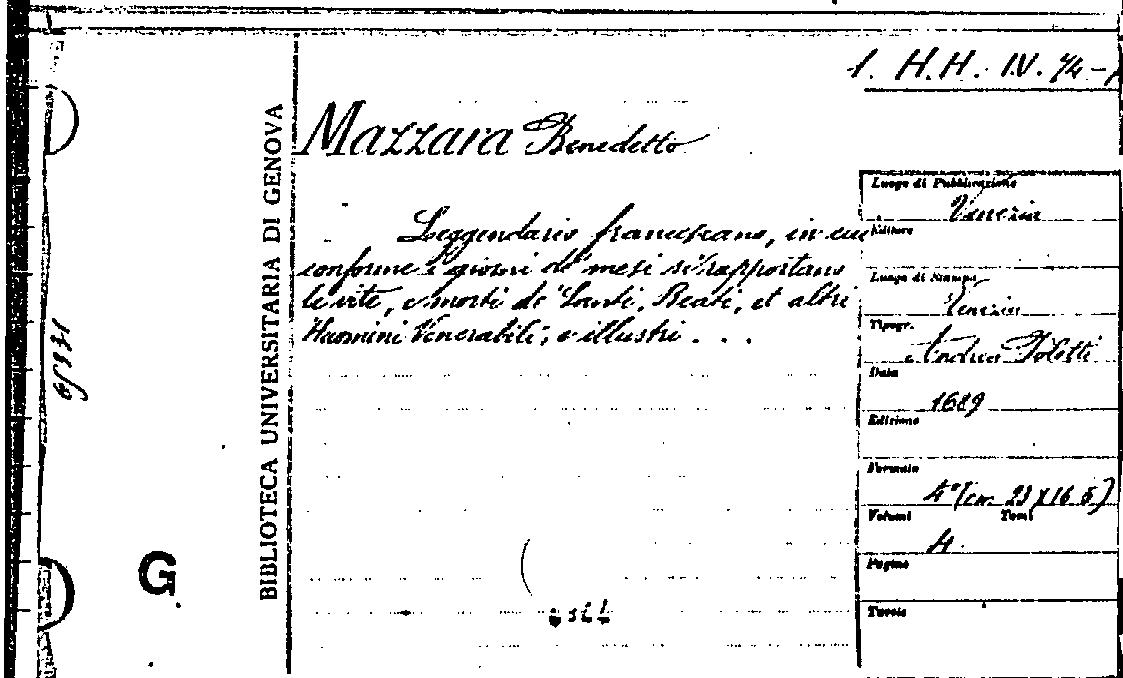 1. H.H. IV. 74-
Mazzara Benedetto
Leggendario francescano, in cui
conforme i giorni de' mesi si rapportano
le vite, e morti de' Santi, Beati, et altri
Huomini Venerabili, e illustri . . .
BIBLIOTECA UNIVERSITARIA DI GENOVA
G
Luogo di Pubblicazione
Venezia
Editore
Luogo di Stampa
Venezia
Tipogr.
Andrea Poletti
Data
1689
Edizione
Formato
4° (cm. 23 X 16.5)
Volumi Tomi
4
Pagine
Tavole